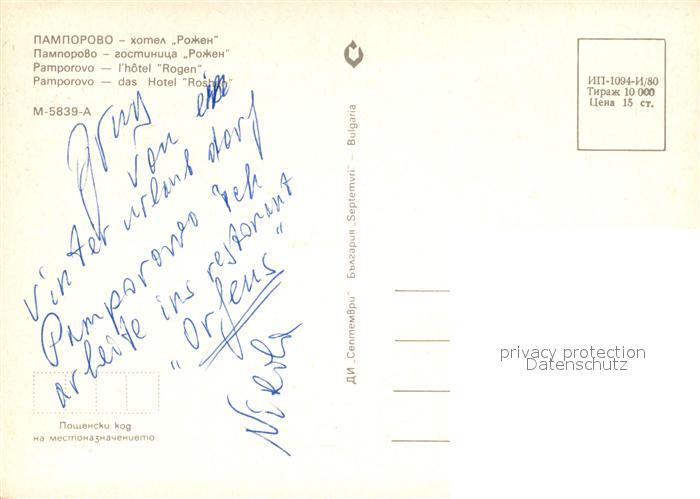 ПАМПОРОВО – хотел „Рожен"
Пампорово – гостиница „Рожен"
Pamporovo — l'hôtel "Rogen"
Pamporovo — das Hotel "Roshen"
М-5839-А
Grus
von ein
vinter urlaub dorf
Pamporowo ich
arbeite ins restorant
"Orfeus"
Nikola
Пощенски код
на местоназначението
ДИ „Септември" България „Septemvri" — Bulgaria
ИП-1094-И/80
Тираж 10 000
Цена 15 ст.
privacy protection
Datenschutz